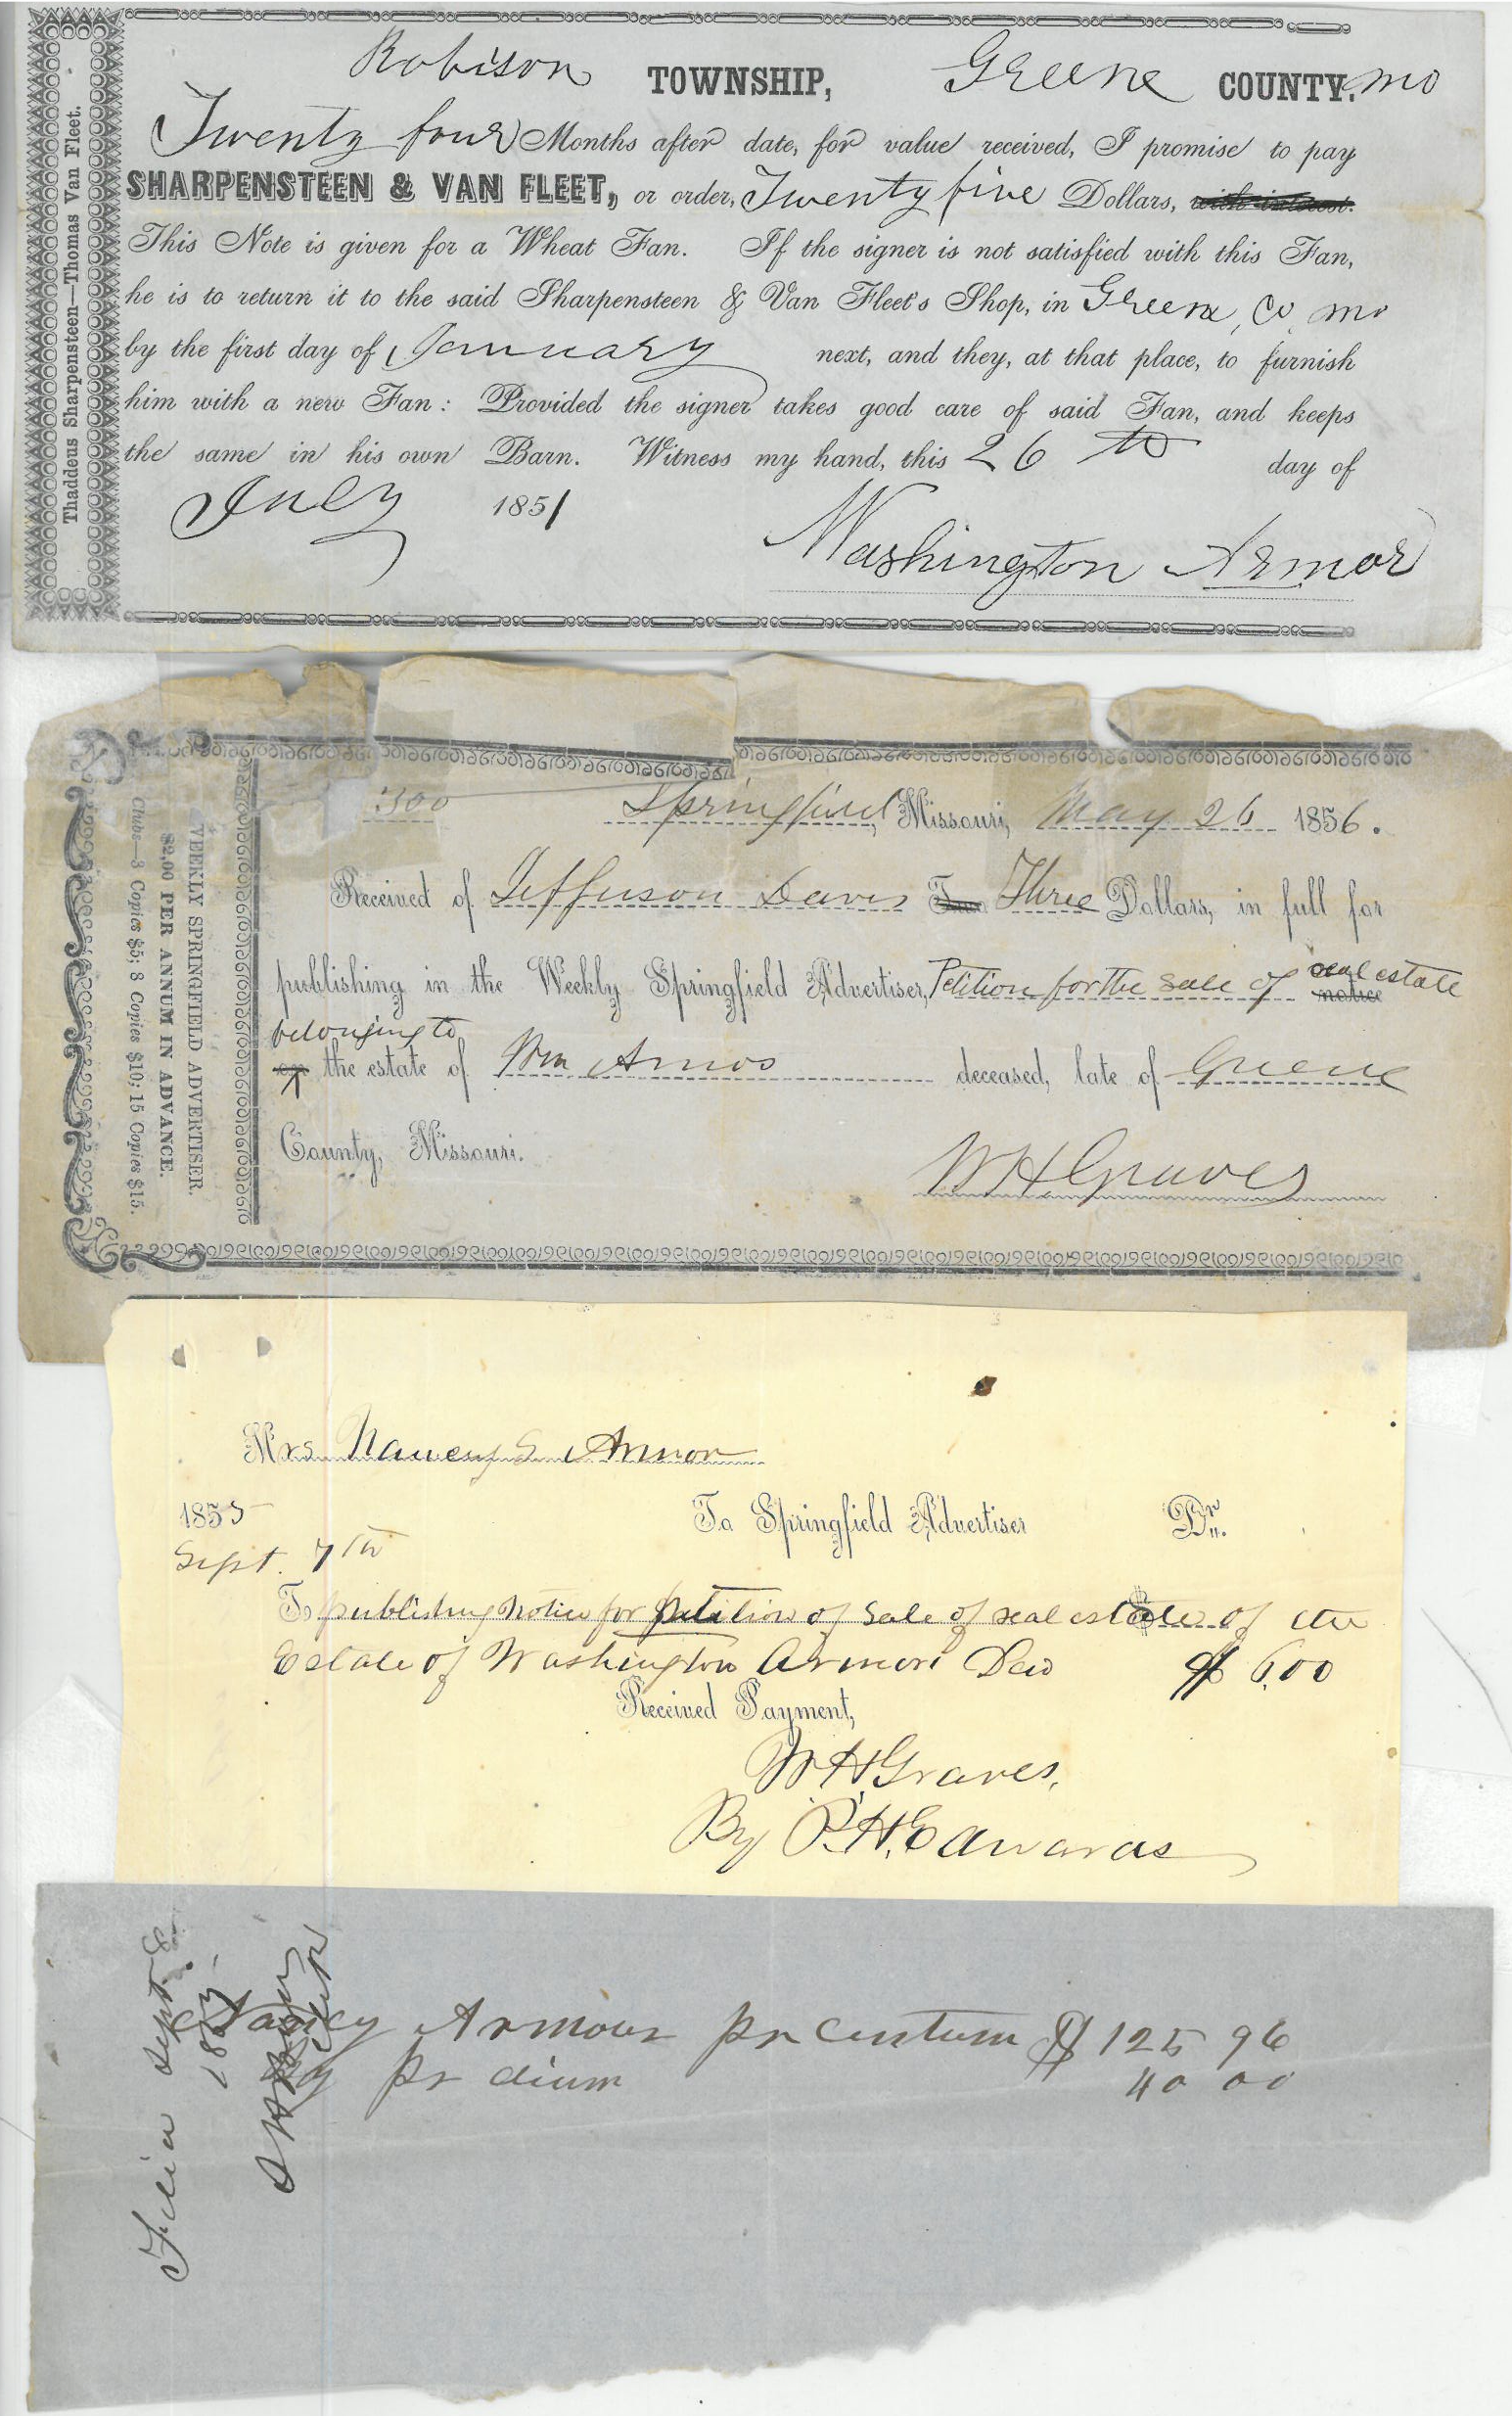 Thaddeus Sharpensteen—Thomas Van Fleet.
Robison TOWNSHIP, Greene COUNTY. Mo
Twenty four Months after date, for value received, I promise to pay
SHARPENSTEEN & VAN FLEET, or order, Twenty five Dollars, with interest.
This Note is given for a Wheat Fan. If the signer is not satisfied with this Fan,
he is to return it to the said Sharpensteen & Van Fleet's Shop, in Greene, Co, Mo
by the first day of January next, and they, at that place, to furnish
him with a new Fan: Provided the signer takes good care of said Fan, and keeps
the same in his own Barn. Witness my hand, this 26th day of
July 1851
Washington Armor
WEEKLY SPRINGFIELD ADVERTISER.
$2,00 PER ANNUM IN ADVANCE.
Clubs—3 Copies $5; 8 Copies $10; 15 Copies $15.
300 Springfield, Missouri, May 26 1856.
Received of Jefferson Davis Two Three Dollars, in full for
publishing in the Weekly Springfield Advertiser, Petition for the sale of real estate
notice
belonging to
on the estate of Wm Amos deceased, late of Greene
County, Missouri.
W H Graves
Mrs. Nancy G Armor
1855 To Springfield Advertiser Dr.
Sept. 7th
To publishing Notice for petition of Sale of real estate of the
Estate of Washington Armor Decd $ 6.00
Received Payment,
W H Graves,
By P. H. Edwards
Nancy Armour pr centum $ 125 96
pr dium 40 00